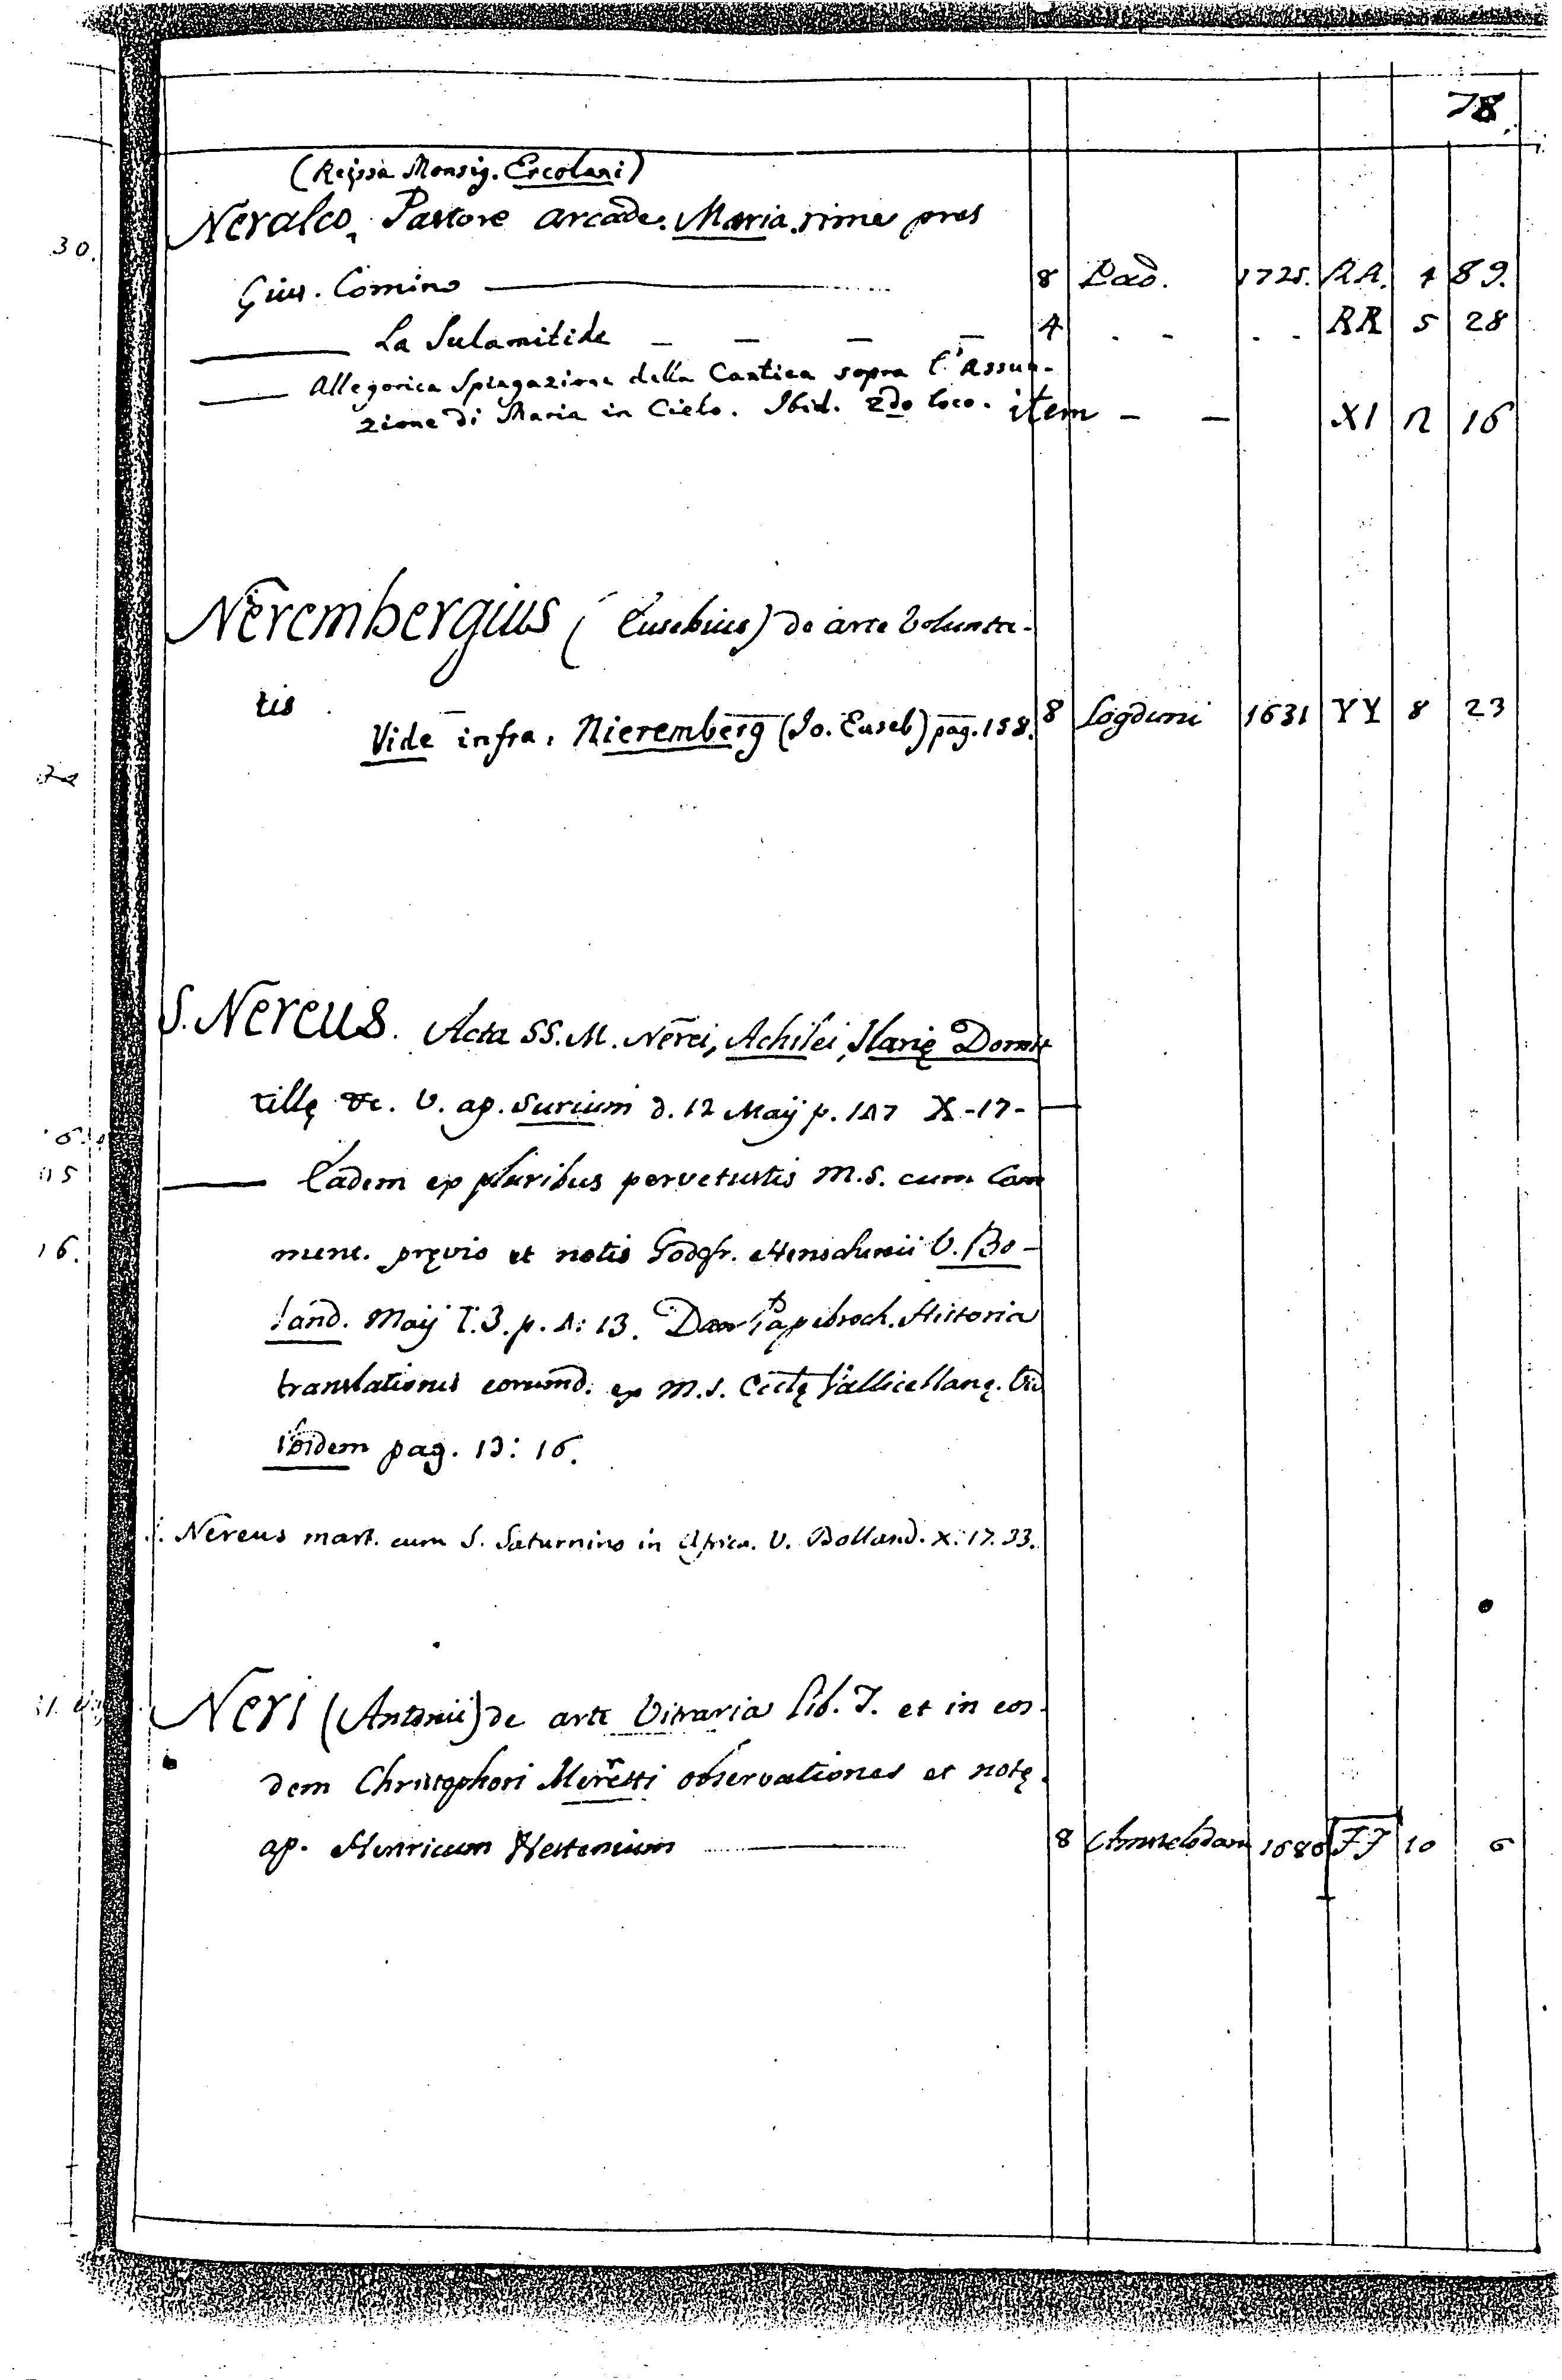 78.
(Monsig. Ercolani)
Neralco, Pastore arcade. Maria. rime pres
30.
Gius. Comino 8 Pad. 1725. RR. 4 89.
La Sulamitide 4 RR 5 28
Allegorica Spiegazione della Cantica sopra l'Assun-
zione di Maria in Cielo. Ibid. 2do loco. item XI 12 16
Nerembergius (Eusebius) de arte Volunta-
tis 8 Logduni 1631 YY 8 23
Vide infra. Nieremberg (Io. Euseb) pag. 158.
S. Nereus. Acta SS. M. Nerei, Achilei, Domi
tillę &c. V. ap. Surium d. 12 Maij p. 147 X-17-
15
Eadem ex pluribus pervetustis M.S. cum Com
16.
ment. pręvio et notis Godfr. Henschenii V. Bo-
land. Maij T.3. p. 4: 13. Papebroch. Historia
translationis eorumd. ex M.S. Vallicellanę. Vid
ibidem pag. 13: 16.
S. Nereus mart. cum S. Saturnino in Africa. V. Bolland. X. 17. 33.
Neri (Antonii) de arte Vitraria Lib. 7. et in eos-
dem Christophori Merretti observationes et notę.
ap. Henricum Westenium 8 Amstelodam 1686 FF 10 6